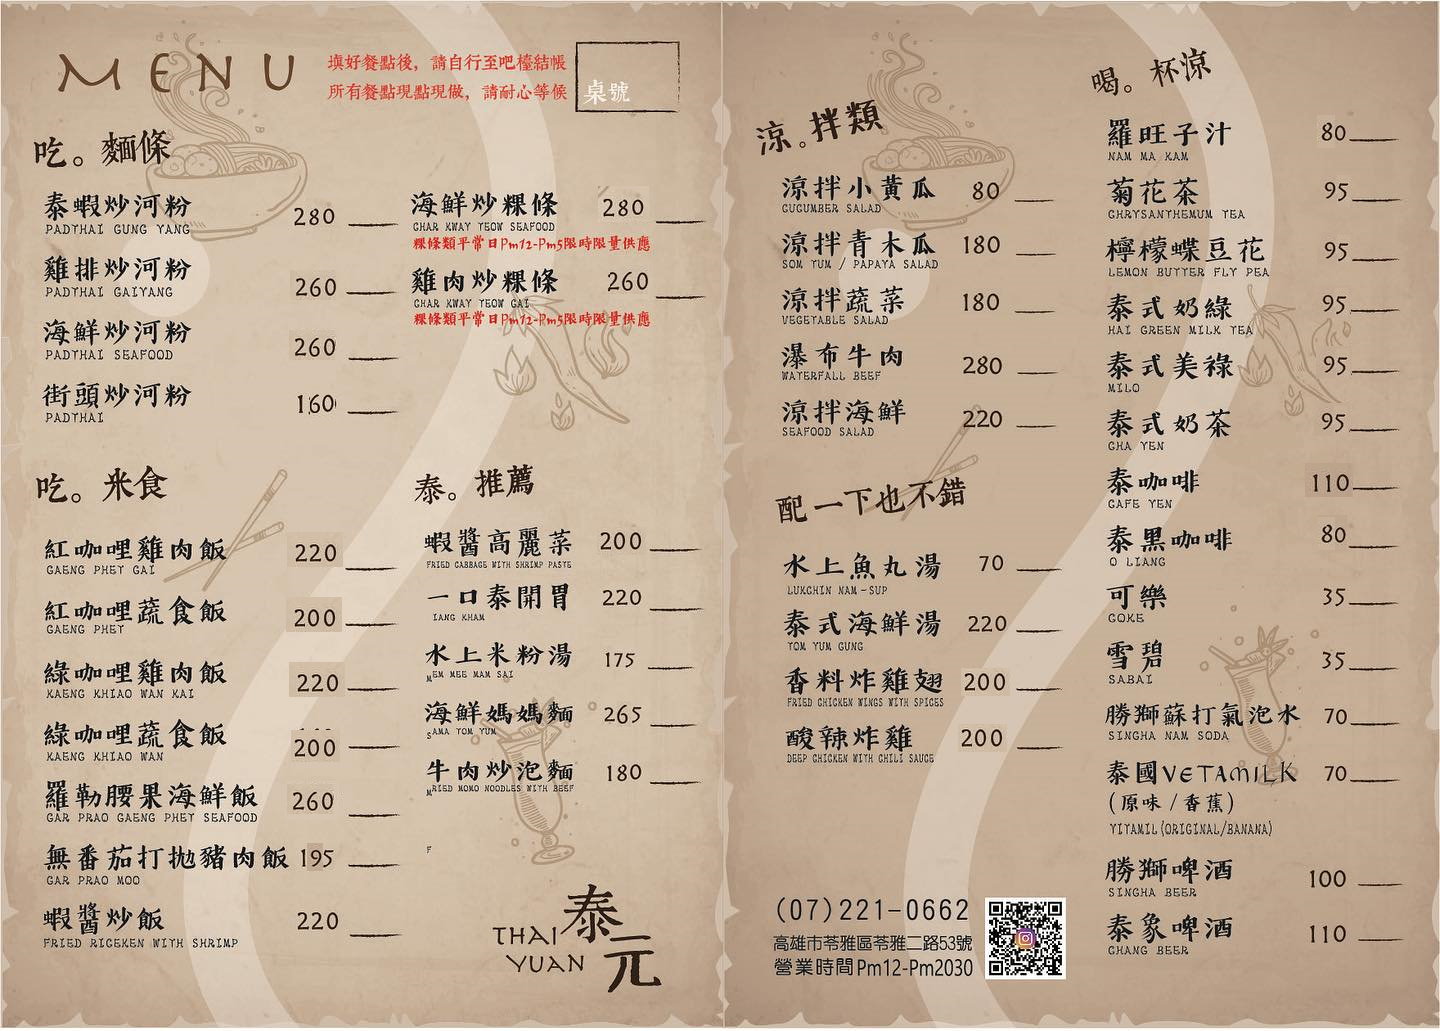 MENU
填好餐點後，請自行至吧檯結帳
所有餐點現點現做，請耐心等候
桌號
吃。麵條
泰蝦炒河粉 280
PADTHAI GUNG YANG
雞排炒河粉 260
PADTHAI GAIYANG
海鮮炒河粉 260
PADTHAI SEAFOOD
街頭炒河粉 160
PADTHAI
海鮮炒粿條 280
CHAR KWAY TEOW SEAFOOD
粿條類平常日Pm12-Pm5限時限量供應
雞肉炒粿條 260
CHAR KWAY TEOW GAI
粿條類平常日Pm12-Pm5限時限量供應
吃。米食
紅咖哩雞肉飯 220
GAENG PHET GAI
紅咖哩蔬食飯 200
GAENG PHET
綠咖哩雞肉飯 220
KAENG KHIAO WAN KAI
綠咖哩蔬食飯 200
KAENG KHIAO WAN
羅勒腰果海鮮飯 260
GAR PRAO GAENG PHET SEAFOOD
無番茄打拋豬肉飯 195
GAR PRAO MOO
蝦醬炒飯 220
FRIED RICEKEN WITH SHRIMP
泰。推薦
蝦醬高麗菜 200
FRIED CABBAGE WITH SHRIMP PASTE
一口泰開胃 220
IANG KHAM
水上米粉湯 175
MEM MEE MAM SAI
海鮮媽媽麵 265
SAMA TOM YUM
牛肉炒泡麵 180
MRIED MOMO NOODLES WITH BEEF
F
THAI YUAN
泰元
涼。拌類
涼拌小黃瓜 80
CUCUMBER SALAD
涼拌青木瓜 180
SOM YUM / PAPAYA SALAD
涼拌蔬菜 180
VEGETABLE SALAD
瀑布牛肉 280
WATERFALL BEEF
涼拌海鮮 220
SEAFOOD SALAD
配一下也不錯
水上魚丸湯 70
LUKCHIN NAM-SUP
泰式海鮮湯 220
TOM YUM GUNG
香料炸雞翅 200
FRIED CHICKEN WINGS WITH SPICES
酸辣炸雞 200
DEEP CHICKEN WITH CHILI SAUCE
(07)221-0662
高雄市苓雅區苓雅二路53號
營業時間Pm12-Pm2030
喝。杯涼
羅旺子汁 80
NAM MA KAM
菊花茶 95
CHRYSANTHEMUM TEA
檸檬蝶豆花 95
LEMON BUTTER FLY PEA
泰式奶綠 95
HAI GREEN MILK TEA
泰式美祿 95
MILO
泰式奶茶 95
CHA YEN
泰咖啡 110
CAFE YEN
泰黑咖啡 80
O LIANG
可樂 35
COKE
雪碧 35
SABAI
勝獅蘇打氣泡水 70
SINGHA NAM SODA
泰國VETAMILK 70
(原味 / 香蕉)
YITAMIL(ORIGINAL/BANANA)
勝獅啤酒 100
SINGHA BEER
泰象啤酒 110
CHANG BEER